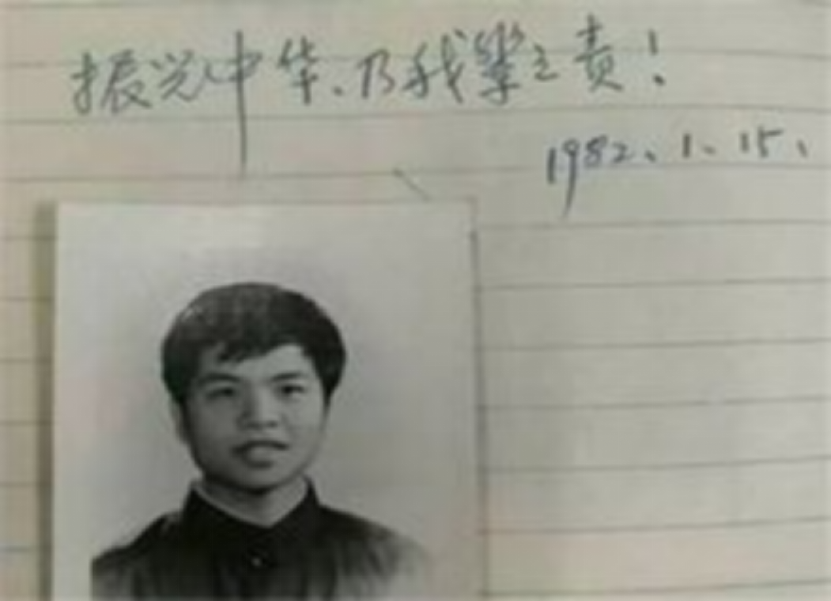 振兴中华、乃我辈之责！
1982、1、15、